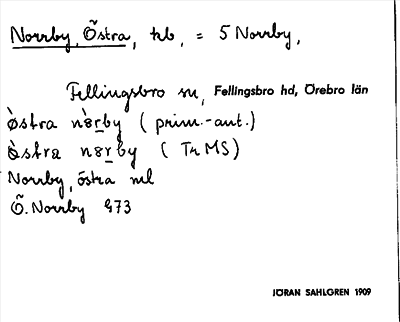 Norrby, Östra, hb, = 5 Norrby,
Fellingsbro sn, Fellingsbro hd, Örebro län
østra nørby (prim.-ant.)
østra nørby (Tr MS)
Norrby, östra ml
Ö. Norrby 473
JÖRAN SAHLGREN 1909